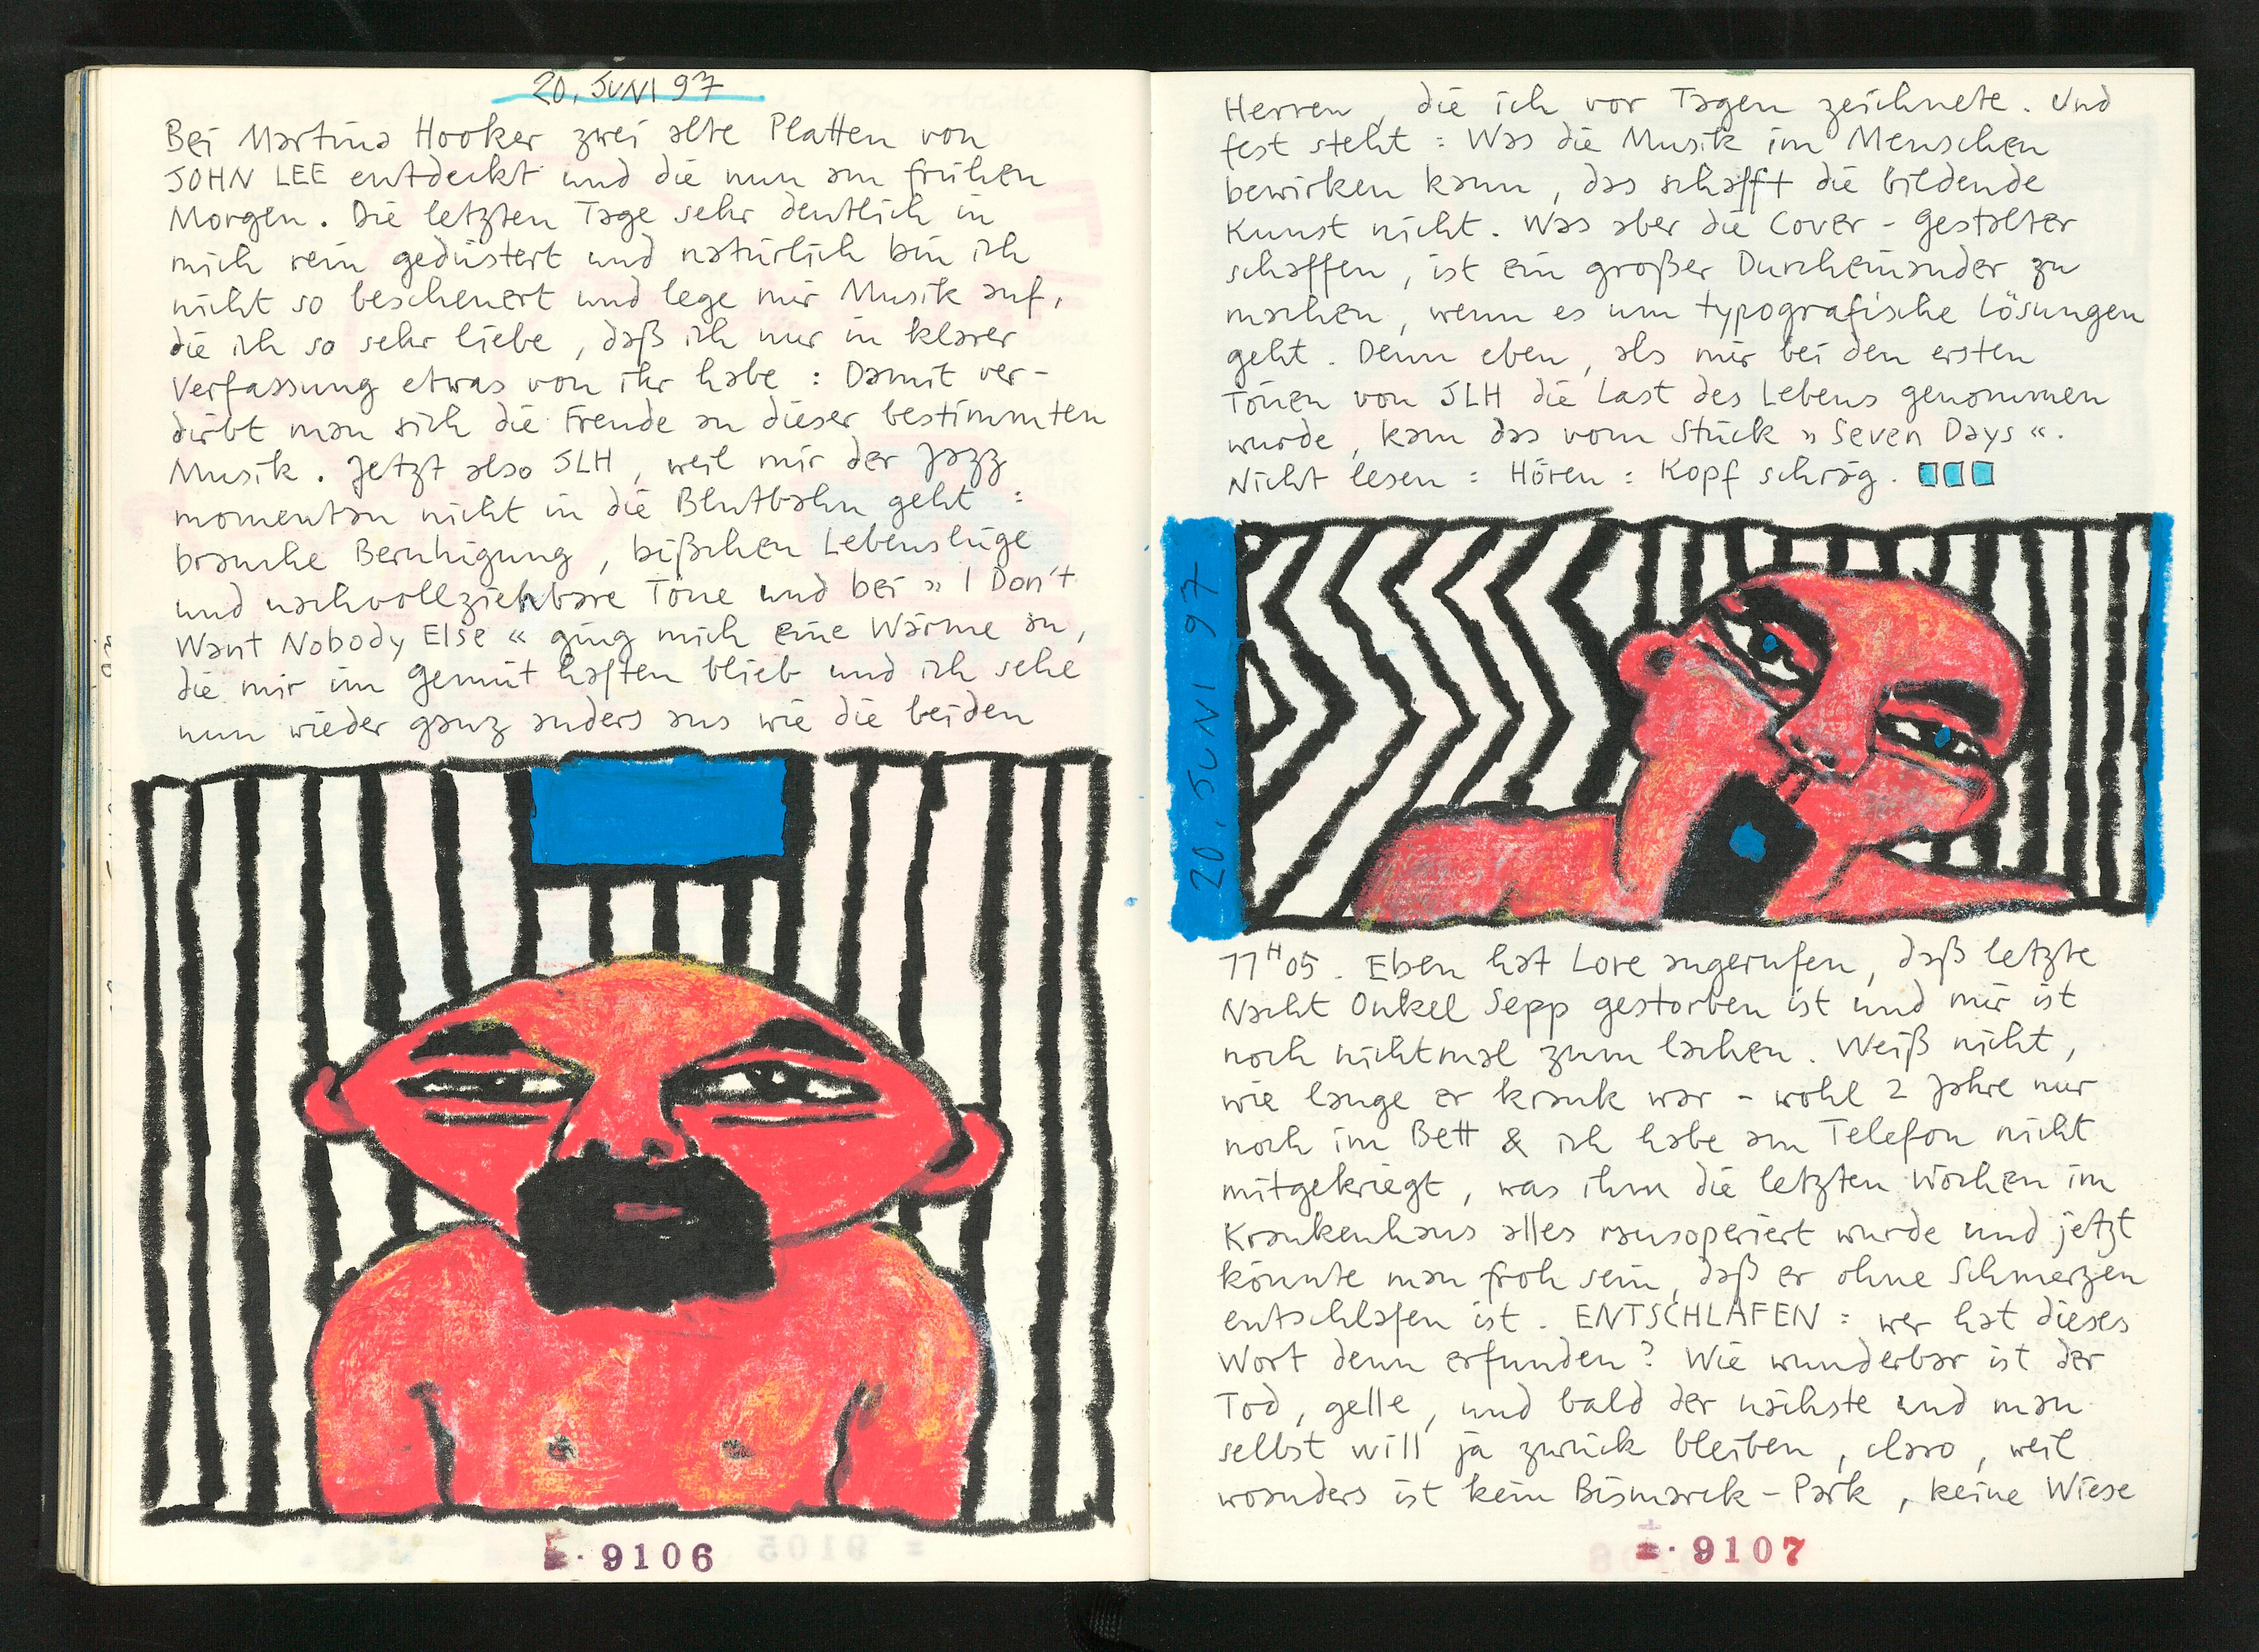 20. JUNI 97
Bei Martina Hooker zwei alte Platten von
JOHN LEE entdeckt und die nun am frühen
Morgen. Die letzten Tage sehr deutlich in
mich rein gedüstert und natürlich bin ich
nicht so bescheuert und lege mir Musik auf,
die ich so sehr liebe, daß ich nur in klarer
Verfassung etwas von ihr habe : Damit ver-
dirbt man sich die Freude an dieser bestimmten
Musik. Jetzt also JLH, weil mir der Jazz
momentan nicht in die Blutbahn geht :
brauche Beruhigung, bißchen Lebenslüge
und nachvollziehbare Töne und bei » I Don't
Want Nobody Else « ging mich eine Wärme an,
die mir im Gemüt haften blieb und ich sehe
nun wieder ganz anders aus wie die beiden
9106
Herren, die ich vor Tagen zeichnete. Und
fest steht : Was die Musik im Menschen
bewirken kann, das schafft die bildende
Kunst nicht. Was aber die Cover-Gestalter
schaffen, ist ein großer Durcheinander zu
machen, wenn es um typografische Lösungen
geht. Denn eben, als mir bei den ersten
Tönen von JLH die Last des Lebens genommen
wurde, kam das vom Stück » Seven Days «.
Nicht lesen : Hören : Kopf schräg.
20. JUNI 97
11 H 05. Eben hat Lore angerufen, daß letzte
Nacht Onkel Sepp gestorben ist und mir ist
noch nichtmal zum lachen. Weiß nicht,
wie lange er krank war - wohl 2 Jahre nur
noch im Bett & ich habe am Telefon nicht
mitgekriegt, was ihm die letzten Wochen im
Krankenhaus alles rausoperiert wurde und jetzt
könnte man froh sein, daß er ohne Schmerzen
entschlafen ist. ENTSCHLAFEN : wer hat dieses
Wort denn erfunden? Wie wunderbar ist der
Tod, gelle, und bald der nächste und man
selbst will ja zurück bleiben, claro, weil
woanders ist kein Bismarck-Park, keine Wiese
9107